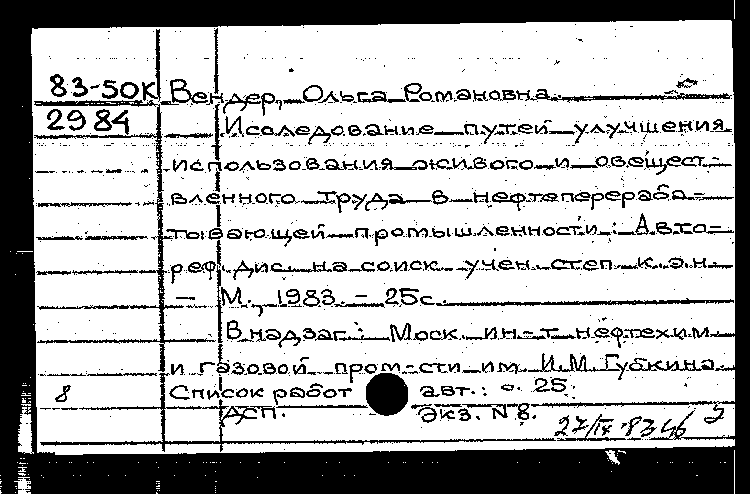 83-50К Вендер, Ольга Романовна.
2984 Исследование путей улучшения
использования живого и овещест-
вленного труда в нефтеперераба-
тывающей промышленности: Авто-
реф. дис. на соиск. учен. степ. к.э.н.
— М., 1983. – 25с.
В надзаг.: Моск. ин-т нефтехим.
и газовой пром-сти им. И.М. Губкина.
8 Список работ авт.: с. 25.
АСП. Экз. N 8.